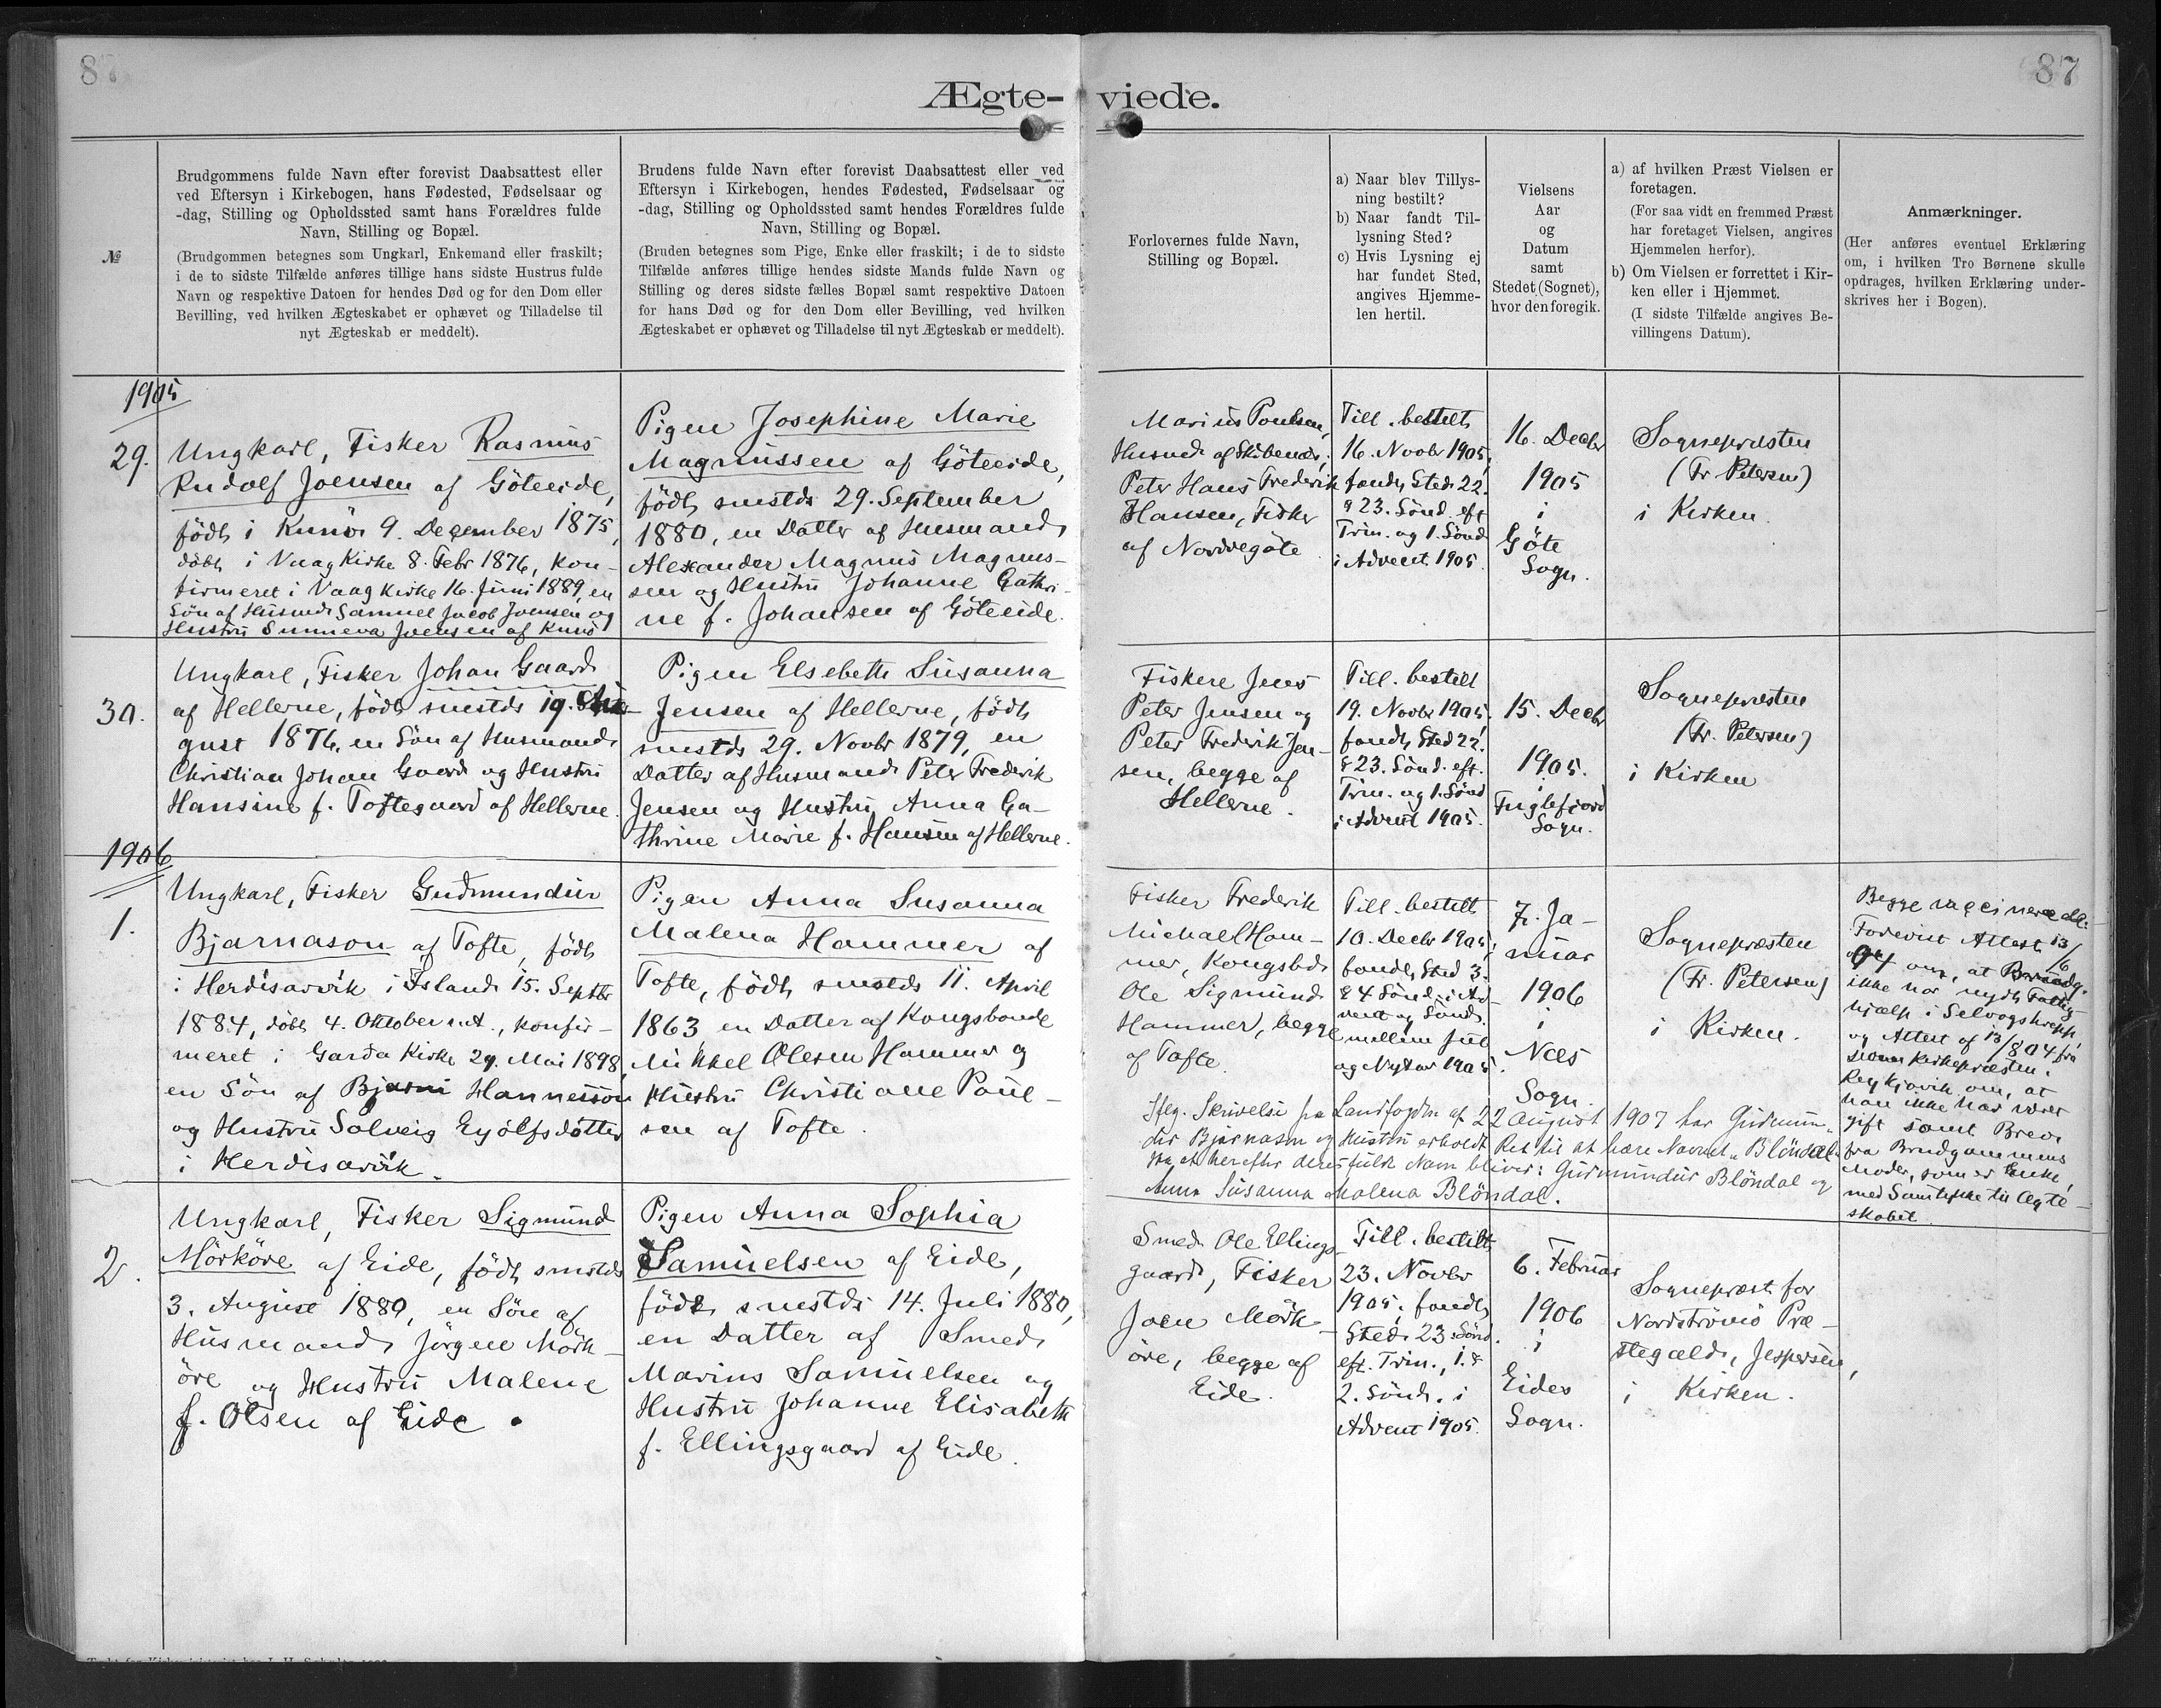 87
87
Ægte-
viede.
№
Brudgommens fulde Navn efter forevist Daabsattest eller
ved Eftersyn i Kirkebogen, hans Fødested, Fødselsaar og
-dag, Stilling og Opholdssted samt hans Forældres fulde
Navn, Stilling og Bopæl.
(Brudgommen betegnes som Ungkarl, Enkemand eller fraskilt;
i de to sidste Tilfælde anføres tillige hans sidste Hustrus fulde
Navn og respektive Datoen for hendes Død og for den Dom eller
Bevilling, ved hvilken Ægteskabet er ophævet og Tilladelse til
nyt Ægteskab er meddelt).
Brudens fulde Navn efter forevist Daabsattest eller ved
Eftersyn i Kirkebogen, hendes Fødested, Fødselsaar og
-dag, Stilling og Opholdssted samt hendes Forældres fulde
Navn, Stilling og Bopæl.
(Bruden betegnes som Pige, Enke eller fraskilt; i de to sidste
Tilfælde anføres tillige hendes sidste Mands fulde Navn og
Stilling og deres sidste fælles Bopæl samt respektive Datoen
for hans Død og for den Dom eller Bevilling, ved hvilken
Ægteskabet er ophævet og Tilladelse til nyt Ægteskab er meddelt).
Forlovernes fulde Navn,
Stilling og Bopæl.
a) Naar blev Tillys-
ning bestilt?
b) Naar fandt Til-
lysning Sted?
c) Hvis Lysning ej
har fundet Sted,
angives Hjemme-
len hertil.
Vielsens
Aar
og
Datum
samt
Stedet (Sognet),
hvor den foregik.
a) af hvilken Præst Vielsen er
foretagen.
(For saa vidt en fremmed Præst
har foretaget Vielsen, angives
Hjemmelen herfor).
b) Om Vielsen er forrettet i Kir-
ken eller i Hjemmet.
(I sidste Tilfælde angives Be-
villingens Datum).
Anmærkninger.
(Her anføres eventuel Erklæring
om, i hvilken Tro Børnene skulle
opdrages, hvilken Erklæring under-
skrives her i Bogen).
1905
29.
Ungkarl, Fisker Rasmus
Rudolf Joensen af Göteeide,
født i Kunö 9. December 1875,
döbt i Vaag Kirke 8. Febr 1876, kon-
firmeret i Vaag Kirke 16. Juni 1889, en
Søn af Husmd Samuel Jacob Joensen og
Hustru Sunneva Joensen af Kunö
Pigen Josephine Marie
Magnussen af Göteeide,
født smstds 29. September
1880, en Datter af Husmand
Alexander Magnus Magnus-
sen og Hustru Johanne Cathri-
ne f. Johansen af Göteeide.
Marius Poulsen,
Husmd af Skibenæs,
Peter Hans Frederik
Hansen, Fisker
af Nordregöte
Till. bestilt
16. Novbr 1905,
fandt Sted 22.
& 23. Sönd. eft
Trin. og 1. Sönd
i Advent 1905.
16. Decbr
1905
i
Göte
Sogn.
Sognepræsten
(Fr. Petersen)
i Kirken.
30.
Ungkarl, Fisker Johan Gaard
af Hellerne, født smstds 19. Au-
gust 1876, en Søn af Husmand
Christian Johan Gaard og Hustru
Hansine f. Toftegaard af Hellerne.
Pigen Elsebeth Susanna
Jensen af Hellerne, født
smstds 29. Novbr 1879, en
Datter af Husmand Peter Frederik
Jensen og Hustru Anna Ca-
thrine Marie f. Hansen af Hellerne.
Fiskere Jens
Peter Jensen og
Peter Frederik Jen-
sen, begge af
Hellerne.
Till. bestilt
19. Novbr 1905,
fandt Sted 22.
& 23. Sönd. eft.
Trin. og 1. Sönd
i Advent 1905.
15. Decbr
1905.
i
Fuglefjord
Sogn.
Sognepræsten
(Fr. Petersen)
i Kirken
1906
1.
Ungkarl, Fisker Gudmundur
Bjarnason af Tofte, født
i Herdisarvik i Island 15. Septbr
1884, døbt 4. Oktober s.A., konfir-
meret i Garda Kirke 29. Mai 1898,
en Søn af Bjarni Hannesson
og Hustru Solveig Eyólfsdotter
i Herdisarvik.
Pigen Anna Susanna
Malena Hammer af
Tofte, født smstds 11. April
1863, en Datter af Kongsbonde
Mikkel Olesen Hammer og
Hustru Christiane Poul-
sen af Tofte.
Fisker Frederik
Michael Ham-
mer, Kongsbd
Ole Sigmund
Hammer, begge
af Tofte.
Till. bestilt
10. Decbr 1905,
fandt Sted 3.
& 4 Sönd. i Ad-
vent og Sönd.
mellem Jul
og Nytaar 1905.
7. Ja-
nuar
1906
i
Næs
Sogn.
Sognepræsten
(Fr. Petersen)
i Kirken.
Begge vaccinerede.
Forevist Attest 13/6
04 om, at Brudg.
ikke har nydt Fattig-
hjælp i Selvogshrepp,
og Attest af 13/8 04 fra
Kirkepræsten i
Reykjavik om, at
han ikke har været
gift samt Brev
fra Brudgommens
Moder, som er Enke,
med Samtykke til Ægte-
skabet.
Iflg. Skrivelse fra Landfogden af 22 August 1907 har Gudmun-
dur Bjarnason og Hustru erholdt Ret til at bære Navnet „Blöndal“
saa at herefter deres fulde Navn bliver: Gudmundur Blöndal og
Anna Susanna Malena Blöndal.
2.
Ungkarl, Fisker Sigmund
Mörköre af Eide, født smstds
3. August 1880, en Søn af
Husmand Jörgen Mörk-
öre og Hustru Malene
f. Olsen af Eide.
Pigen Anna Sophia
Samuelsen af Eide,
født smstds 14. Juli 1880,
en Datter af Smed
Marius Samuelsen og
Hustru Johanne Elisabeth
f. Ellingsgaard af Eide.
Smed Ole Ellings-
gaard, Fisker
Joen Mörk-
öre, begge af
Eide.
Till. bestilt
23. Novbr
1905, fandt
Sted 23. Sönd.
eft. Trin., 1. &
2. Sönd. i
Advent 1905.
6. Februar
1906
i
Eides
Sogn.
Sognepræst for
Nordströmö Præ-
stegæld, Jespersen,
i Kirken.